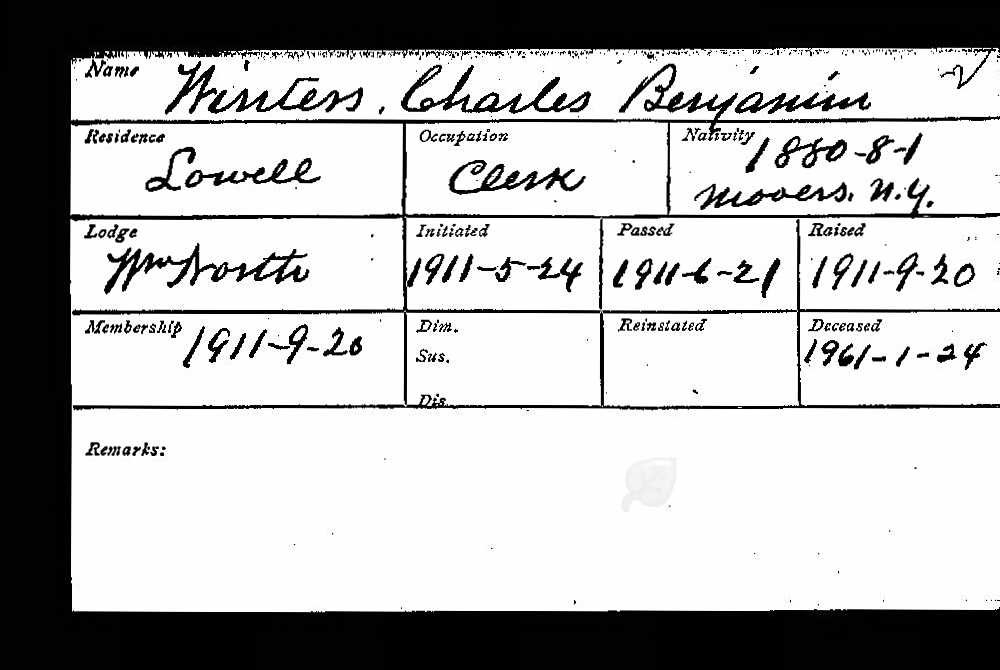 Name Winters, Charles Benjamin
Residence Lowell
Occupation Clerk
Nativity 1880-8-1
Mooers. N.Y.
Lodge Wm North
Initiated 1911-5-24
Passed 1911-6-21
Raised 1911-9-20
Membership 1911-9-20
Dim.
Sus.
Dis
Reinstated
Deceased 1961-1-24
Remarks: